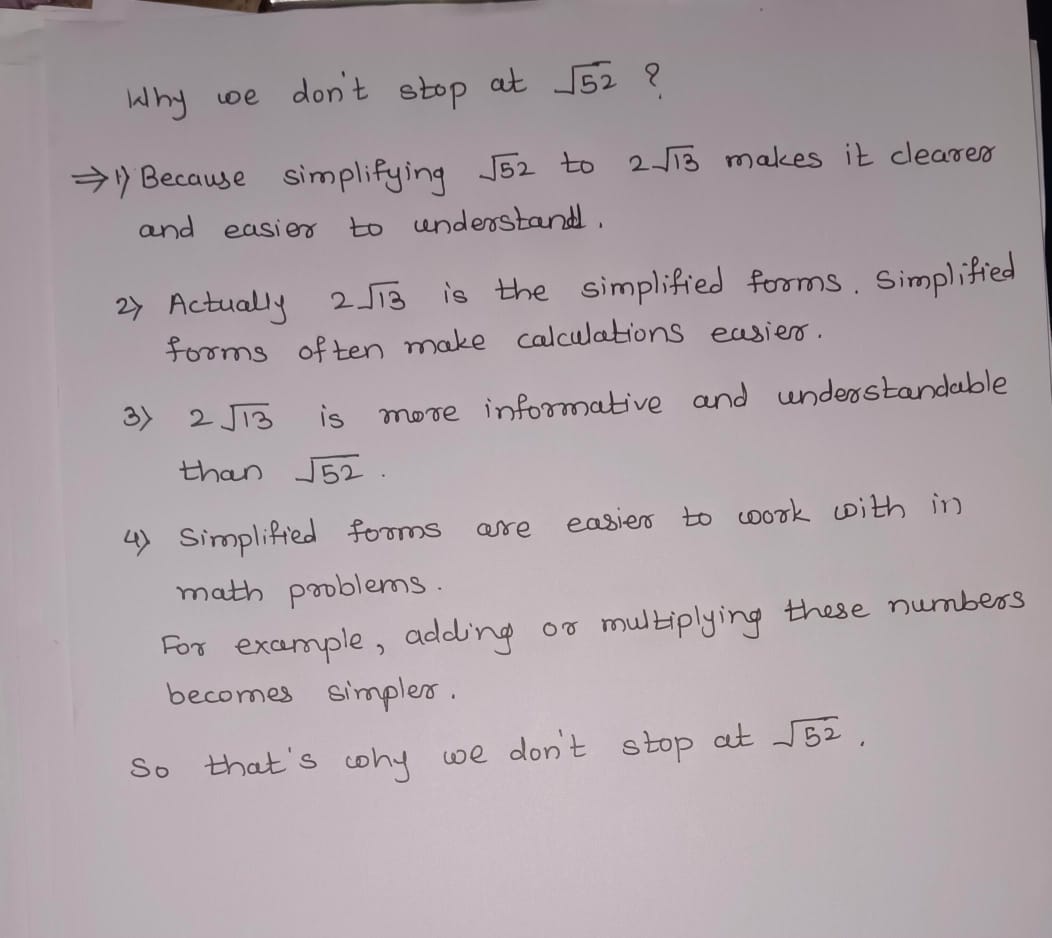 Why we don't stop at √52 ?
⇒ 1) Because simplifying √52 to 2√13 makes it clearer
and easier to understand.
2) Actually 2√13 is the simplified forms. Simplified
forms often make calculations easier.
3) 2√13 is more informative and understandable
than √52.
4) Simplified forms are easier to work with in
math problems.
For example, adding or multiplying these numbers
becomes simpler.
So that's why we don't stop at √52.